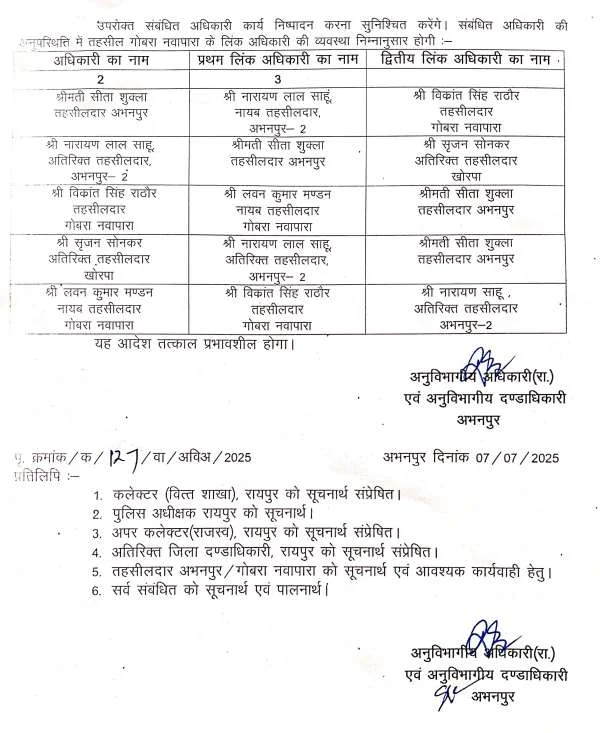 उपरोक्त संबंधित अधिकारी कार्य निष्पादन करना सुनिश्चित करेंगे। संबंधित अधिकारी की
अनुपरिथति में तहसील गोबरा नवापारा के लिंक अधिकारी की व्यवस्था निम्नानुसार होगी :–
अधिकारी का नाम प्रथम लिंक अधिकारी का नाम द्वितीय लिंक अधिकारी का नाम
2 3
श्रीमती सीता शुक्ला श्री नारायण लाल साहू, श्री विकांत सिंह राठौर
तहसीलदार अभनपुर नायब तहसीलदार, तहसीलदार
अभनपुर– 2 गोबरा नवापारा
श्री नारायण लाल साहू, श्रीमती सीता शुक्ला श्री सृजन सोनकर
अतिरिक्त तहसीलदार, तहसीलदार अभनपुर अतिरिक्त तहसीलदार
अभनपुर– 2 खोरपा
श्री विकांत सिंह राठौर श्री लवन कुमार मण्डन श्रीमती सीता शुक्ला
तहसीलदार नायब तहसीलदार तहसीलदार अभनपुर
गोबरा नवापारा गोबरा नवापारा
श्री सृजन सोनकर श्री नारायण लाल साहू, श्रीमती सीता शुक्ला
अतिरिक्त तहसीलदार अतिरिक्त तहसीलदार, तहसीलदार अभनपुर
खोरपा अभनपुर– 2
श्री लवन कुमार मण्डन श्री विकांत सिंह राठौर श्री नारायण साहू ,
नायब तहसीलदार तहसीलदार अतिरिक्त तहसीलदार
गोबरा नवापारा गोबरा नवापारा अभनपुर–2
यह आदेश तत्काल प्रभावशील होगा।
अनुविभागीय अधिकारी(रा.)
एवं अनुविभागीय दण्डाधिकारी
अभनपुर
पृ. क्रमांक/क/127/वा/अविअ/2025 अभनपुर दिनांक 07/07/2025
प्रतिलिपि :–
1. कलेक्टर (वित्त शाखा), रायपुर को सूचनार्थ संप्रेषित।
2. पुलिस अधीक्षक रायपुर को सूचनार्थ।
3. अपर कलेक्टर(राजस्व), रायपुर को सूचनार्थ संप्रेषित।
4. अतिरिक्त जिला दण्डाधिकारी, रायपुर को सूचनार्थ संप्रेषित।
5. तहसीलदार अभनपुर/गोबरा नवापारा को सूचनार्थ एवं आवश्यक कार्यवाही हेतु।
6. सर्व संबंधित को सूचनार्थ एवं पालनार्थ।
अनुविभागीय अधिकारी(रा.)
एवं अनुविभागीय दण्डाधिकारी
अभनपुर